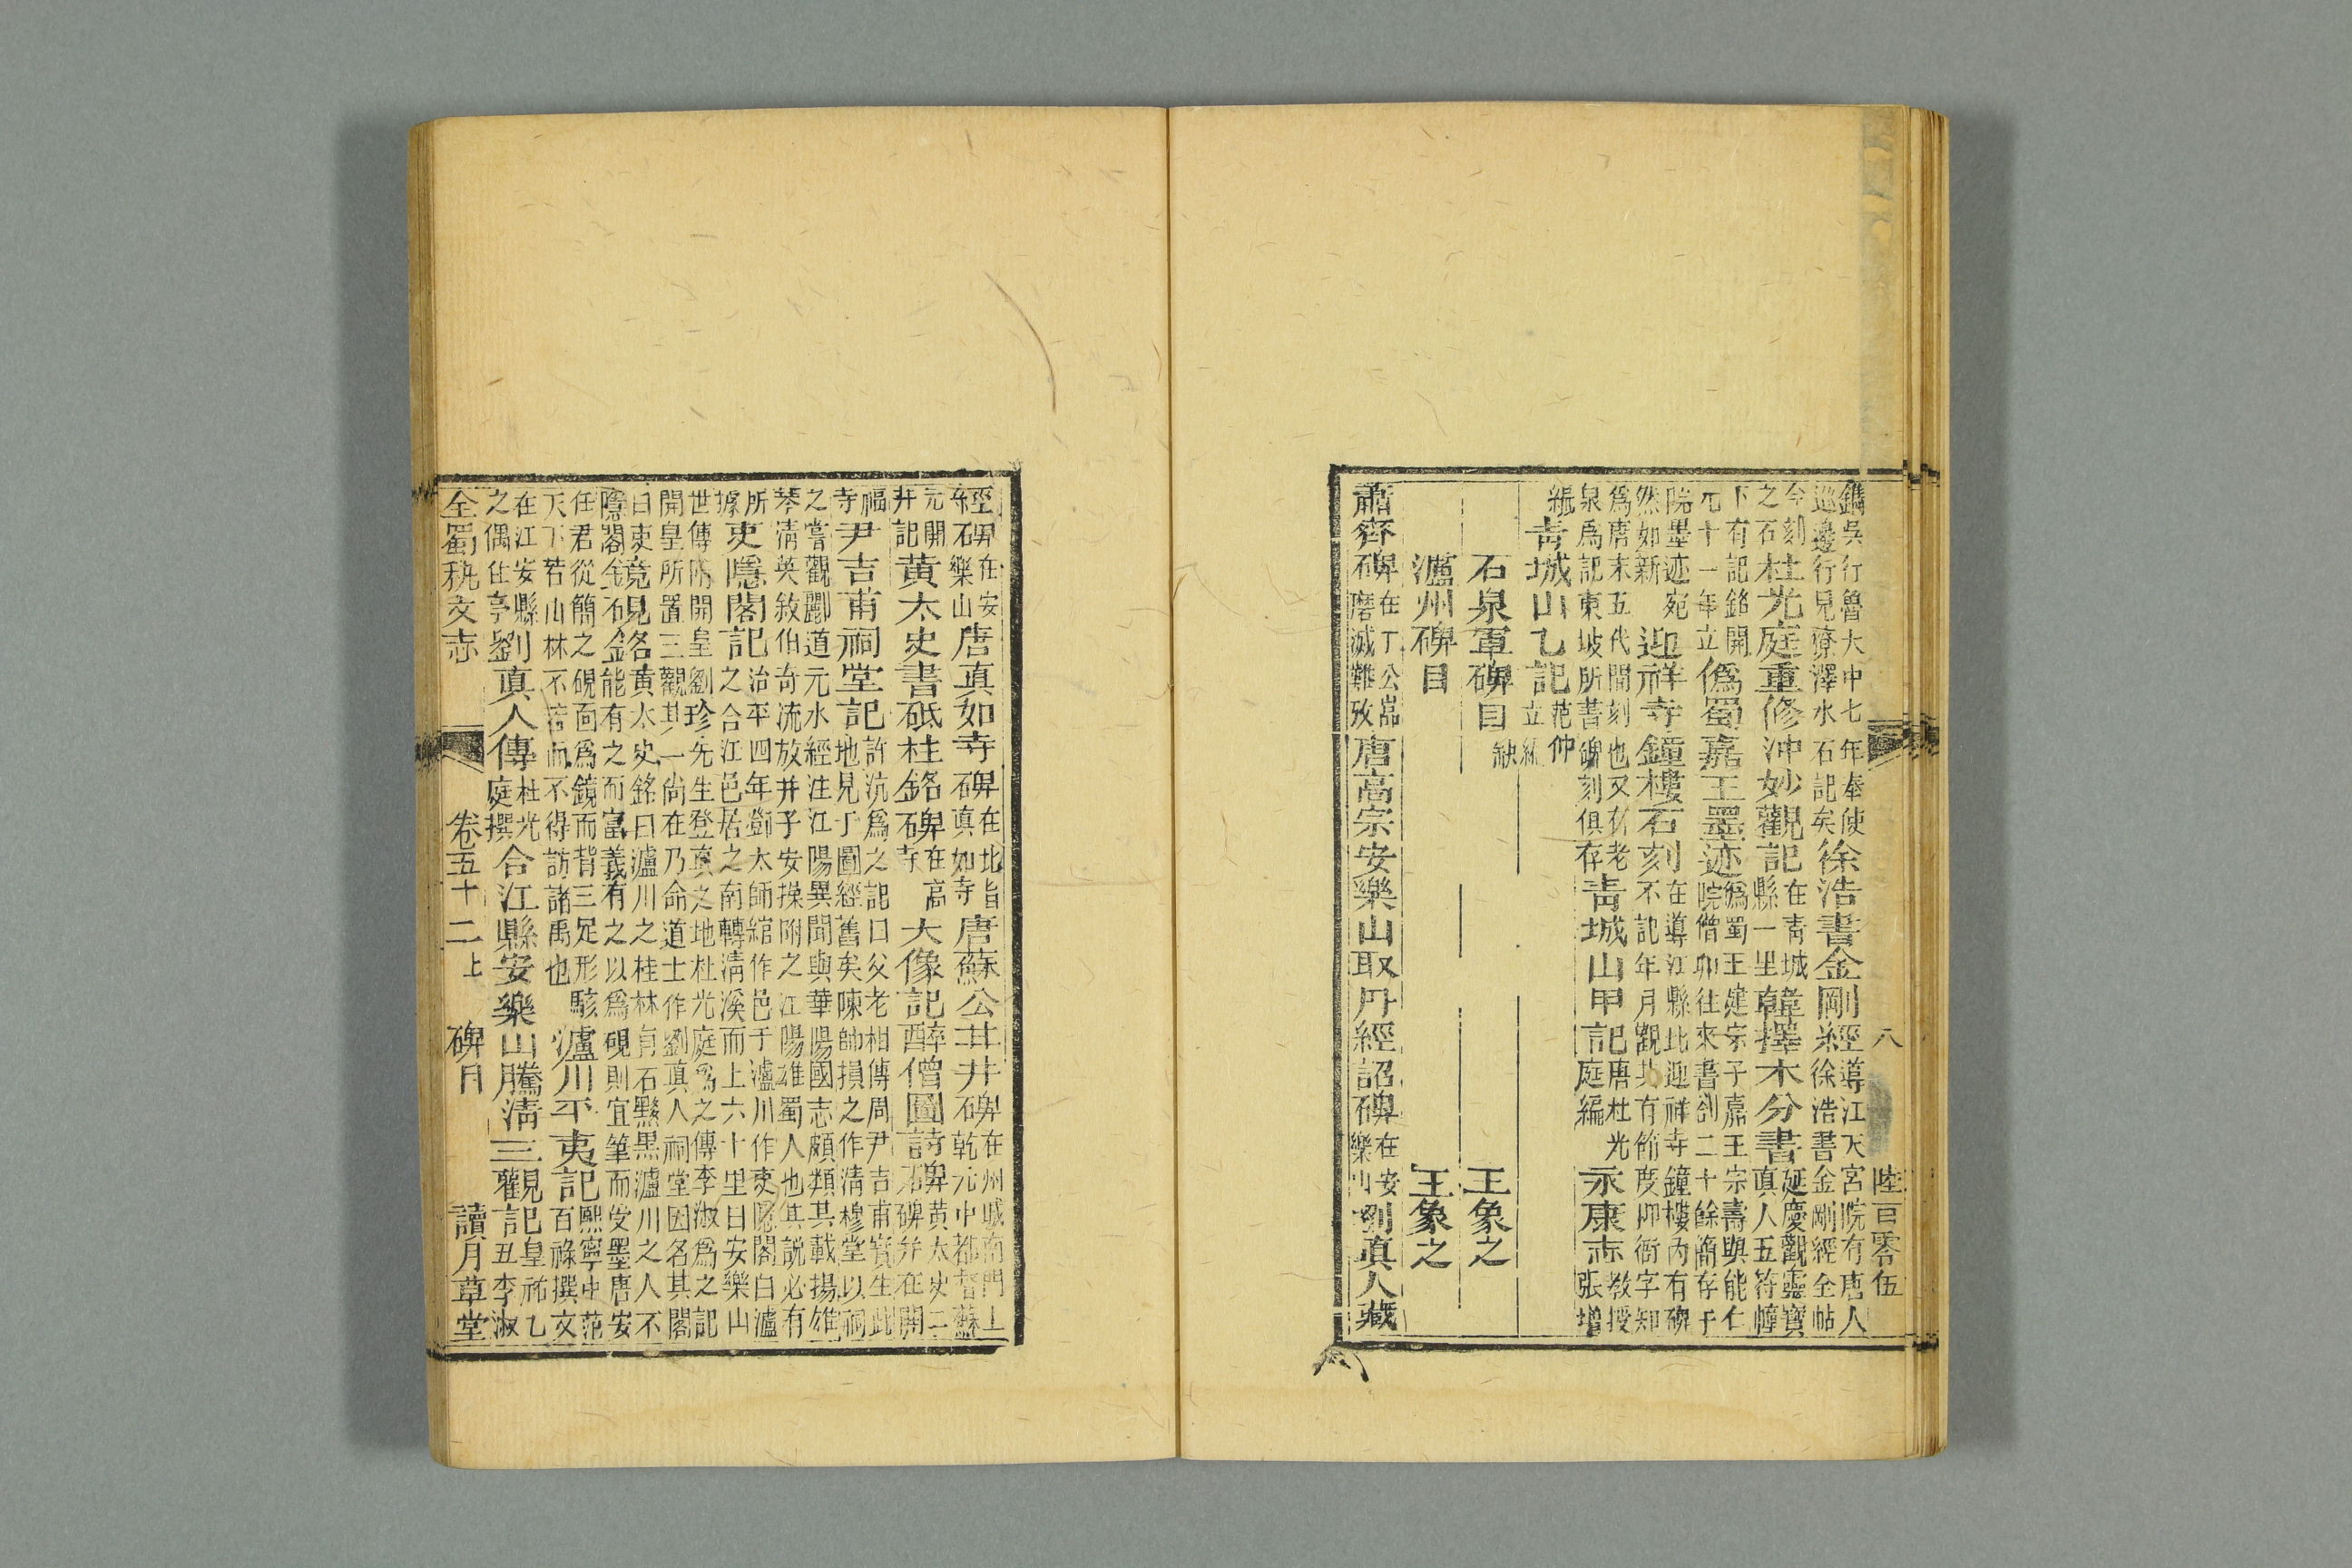 鐫吳行魯大中七年奉使
巡邊行見療澤水石記矣徐浩書金剛經導江天宮院有唐人
徐浩書金剛經全帖
今刻
之石杜光庭重修沖妙觀記在青城
縣一里韓擇木分書延慶觀靈寶
真人五符幢
下有記銘開
元十一年立僞蜀嘉王墨迹僞蜀王建宗子嘉王宗壽與能仁
院僧卯往來書劄二十餘簡存于
院墨迹宛
然如新迎祥寺鐘樓石刻在導江縣北迎祥寺鐘樓內有碑
不記年月觀其有節度押衙字知
爲唐末五代開刻也又有老
泉爲記東坡所書碑刻俱存青城山甲記唐杜光
庭編永康志教授
張增
緝青城山乙記范仲
立編
石泉軍碑目缺　王象之
瀘州碑目　王象之
蕭齊碑在丁公嵓
磨滅難攷唐高宗安樂山取丹經詔碑在安
樂山劉真人藏
八　陸百零伍
經碑在安
樂山唐真如寺碑在北岩
真如寺唐蘇公井井碑在州城南門上
乾元中都督蘇
元開
井記黃太史書砥柱銘碑在高
寺大像記醉僧圖詩碑黃太史二
碑并在開
福
寺尹吉甫祠堂記許沆爲之記曰父老相傳周尹吉甫實生此
地見丁圖經舊矣陳帥損之作清穆堂以祠
之嘗觀酈道元水經注江陽異聞與華陽國志頗類其載揚雄
琴清英敘伯奇流放井子安操附之江陽雄蜀人也其說必有
所
據吏隱閣記治平四年鄧太師綰作邑于瀘川作吏隱閣白瀘
之合江邑居之南轉清溪而上六十里曰安樂山
世傳隋開皇劉珍先生登真之地杜光庭爲之傳李淑爲之記
開皇所置三觀其一尚在乃命道士作劉真人祠堂因名其閣
曰吏
隱閣金石竟見名黃太史銘曰瀘川之桂林有石黟黑瀘川之人不
能有之而富義有之以爲硯則宜筆而受墨唐安
任君從簡之硯面爲鏡而背三足形駭
天下若山林不若而不得訪諸禹也瀘川平夷記熙寧中范
百祿撰文
在江安縣
之偶住亭劉真人傳杜光
庭撰合江縣安樂山騰清三觀記皇祐乙
丑李淑
全蜀秇文志　卷五十二上　碑目　讀月草堂